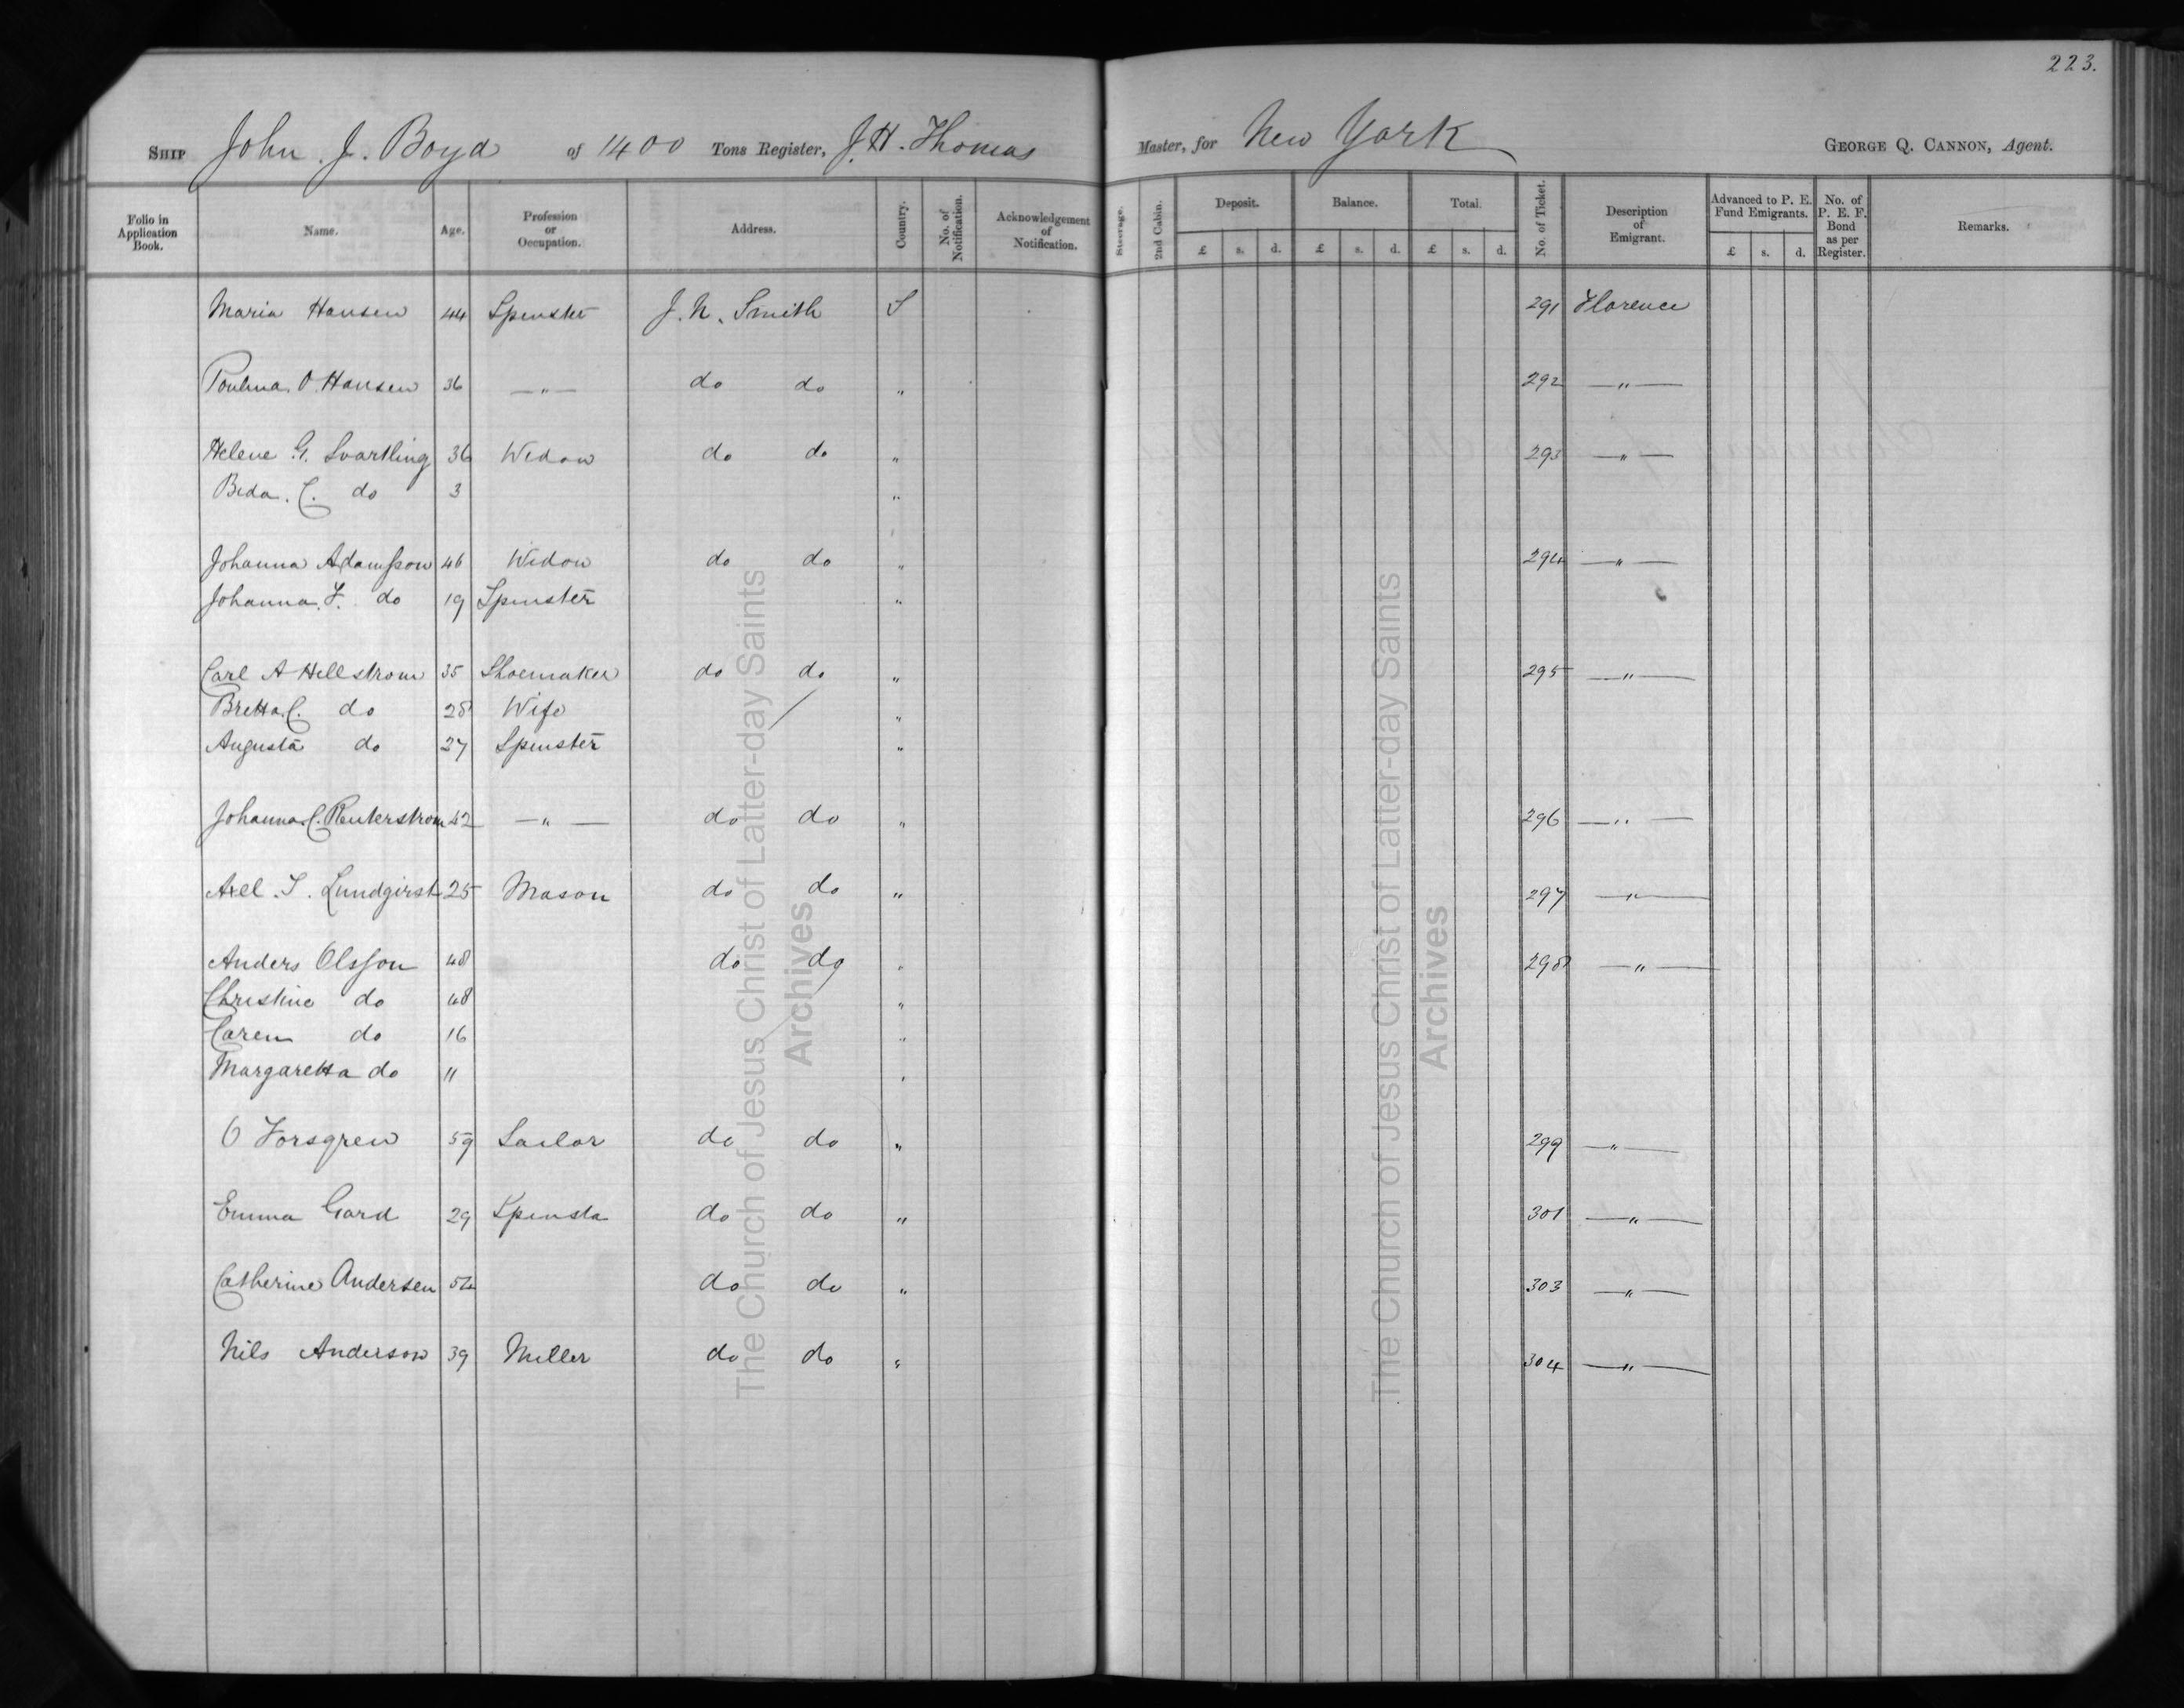 223.
SHIP John. J. Boyd of 1400 Tons Register, J. H. Thomas Master, for New York GEORGE Q. CANNON, Agent.
Folio in Application Book. Name. Age. Profession or Occupation. Address. Country. No. of Notification. Acknowledgement of Notification. Steerage. 2nd Cabin. Deposit. £ s. d. Balance. £ s. d. Total. £ s. d. No. of Ticket. Description of Emigrant. Advanced to P. E. Fund Emigrants. £ s. d. No. of P. E. F. Bond as per Register. Remarks.
Maria Hansen 44 Spenster J. N. Smith S 291 Florence
Poulina O Hansen 36 —"— do do " 292 —"—
Helene G. Svartling 36 Widow do do " 293 —"—
Beda. C. do 3 "
Johanna Adamsson 46 Widow do do " 294 —"—
Johanna. F. do 19 Spinster "
Carl A Hellstrom 35 Shoemaker do do " 295 —"—
Bretta C. do 28 Wife "
Augusta do 27 Spinster "
Johanna C. Reuterstrom 42 —"— do do " 296 —"—
Axel. S. Lundgirst 25 Mason do do " 297 —"—
Anders Olsson 48 do do " 298 —"—
Christine do 48 "
Caren do 16 "
Margaretta do 11 "
O Forsgren 59 Sailor do do " 299 —"—
Emma Gard 29 Spinsta do do " 301 —"—
Catherine Andersen 54 do do " 303 —"—
Nils Anderson 39 Miller do do " 304 —"—
The Church of Jesus Christ of Latter-day Saints
Archives
The Church of Jesus Christ of Latter-day Saints
Archives